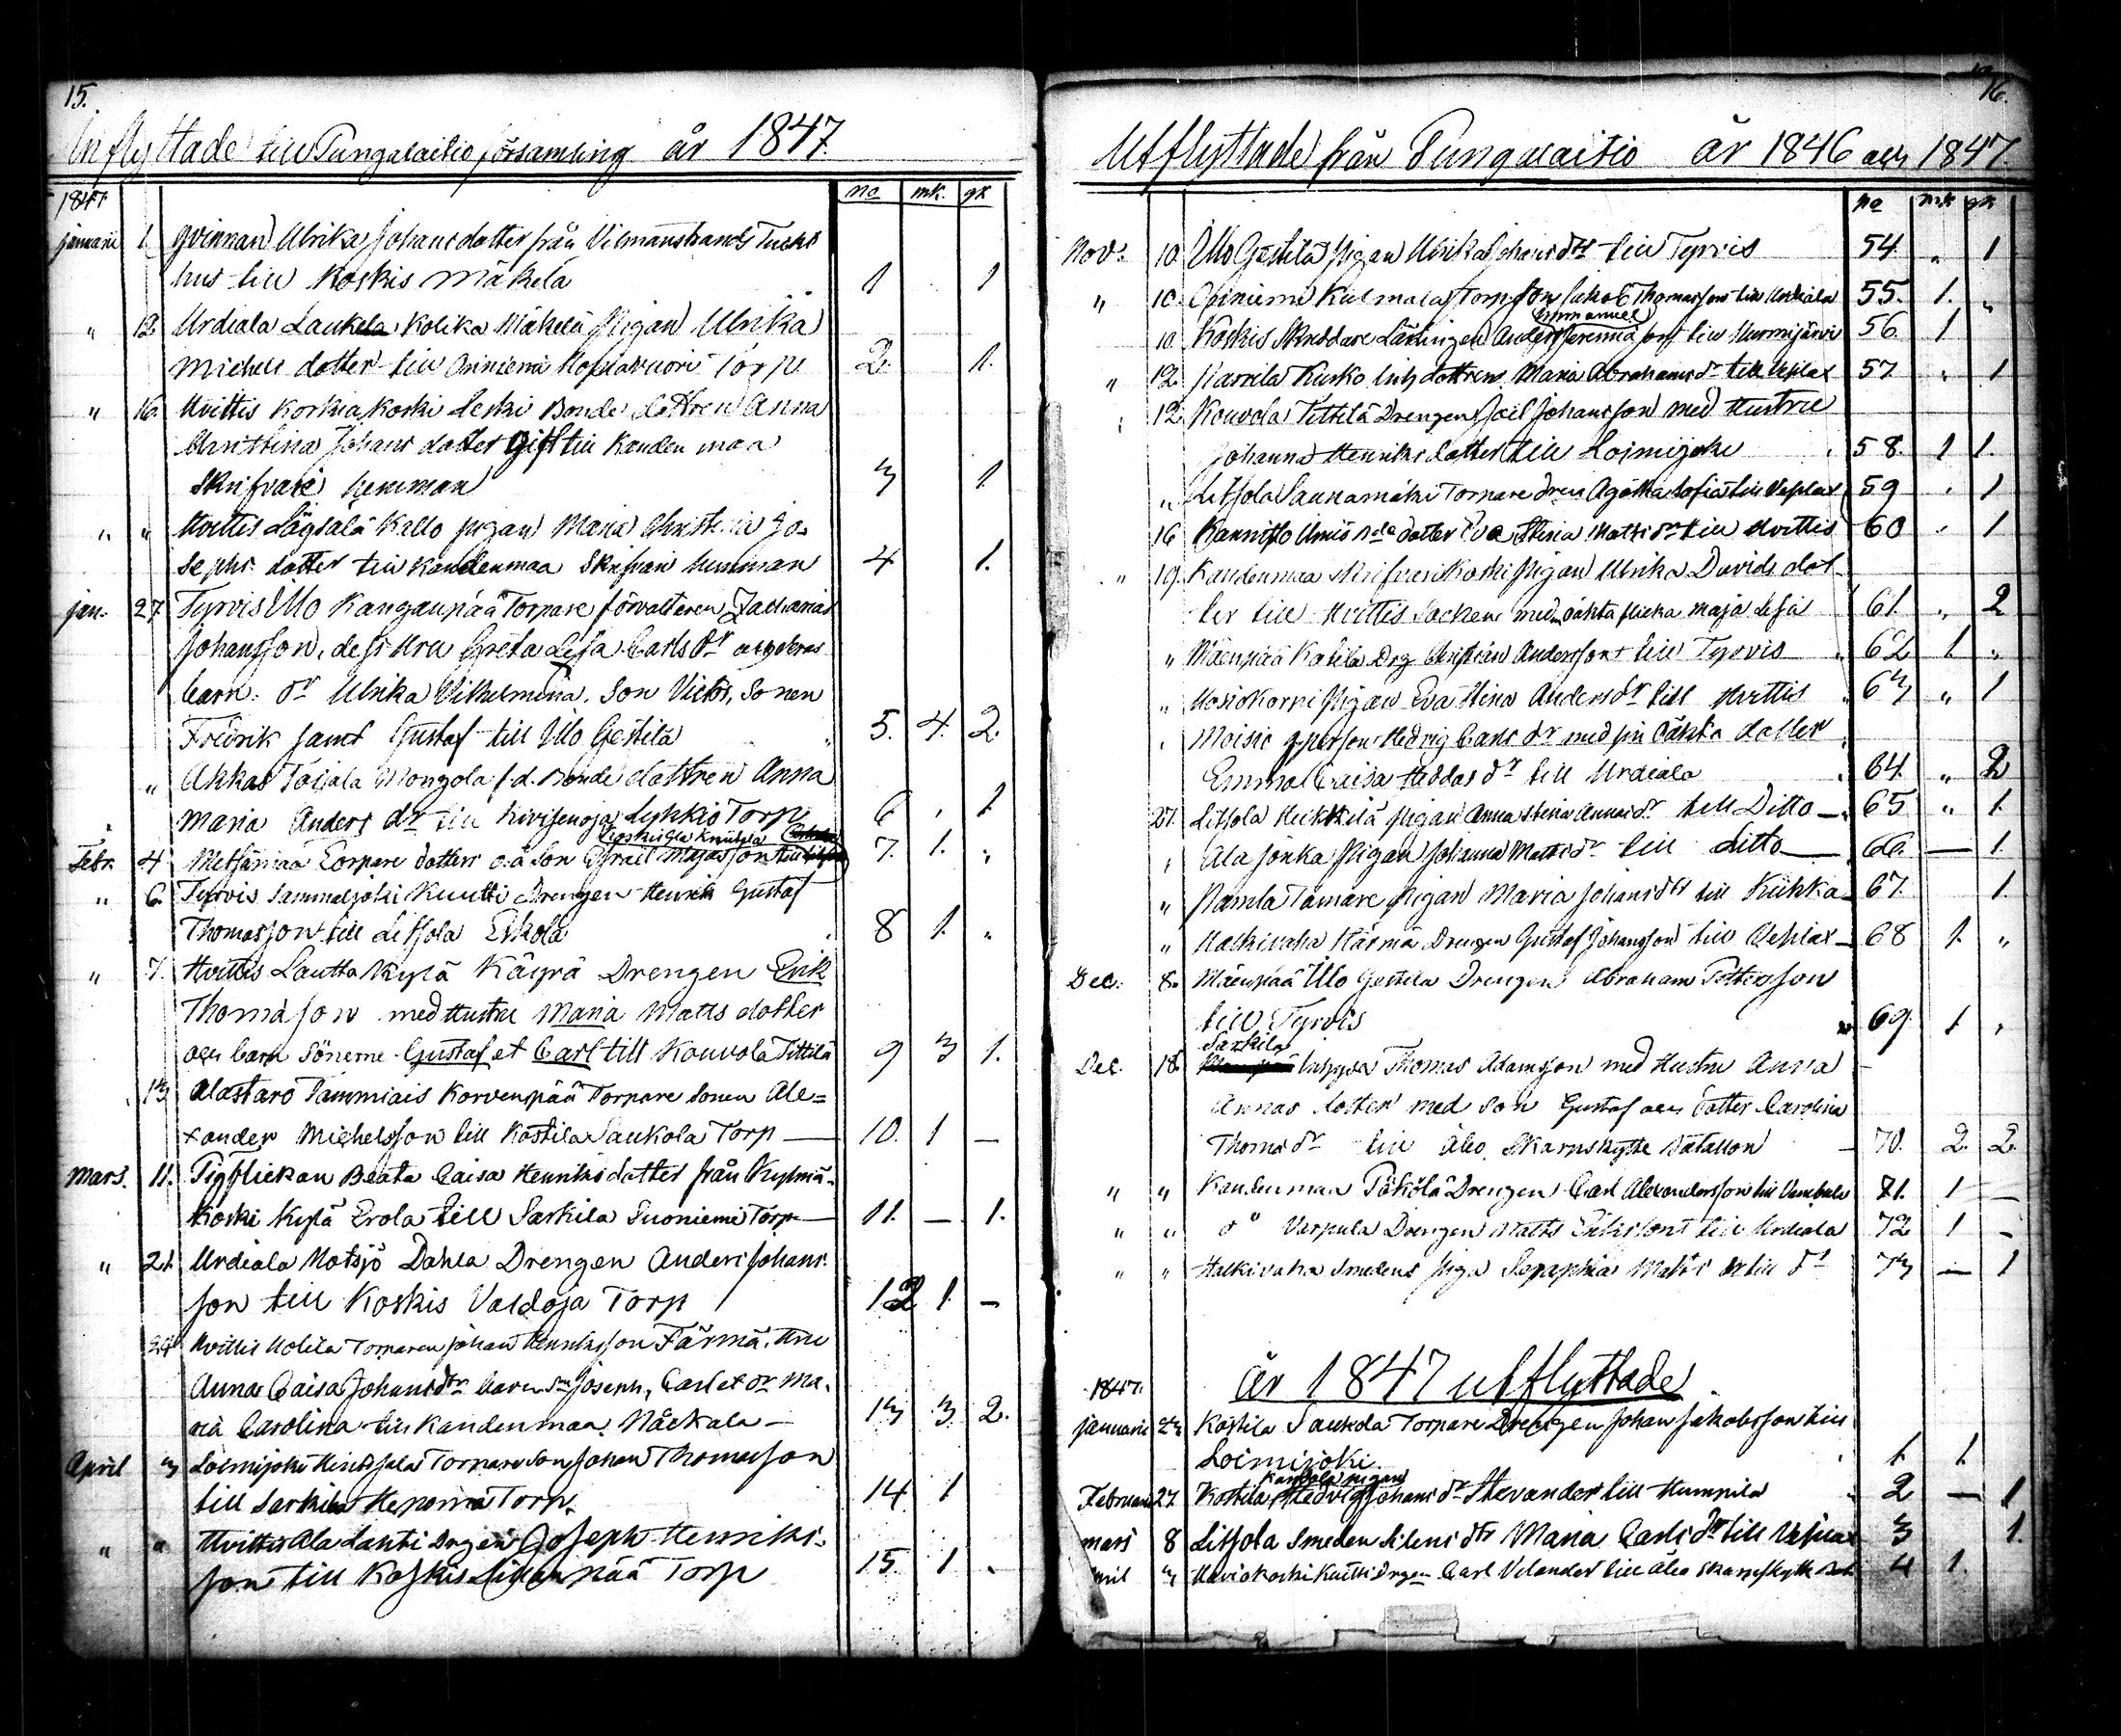 15.
Inflyttade till Pungalaitio församling år 1847.
1847 no mk. qk
januarii 1. qvinnan Ulrika Johans dotter från Vilmanstrands Tuckt
hus till Koskis Mäkelä 1 1
" 12. Urdiala Laukela Kolika Mäkelä Pigan Ulrika
Michels dotter till Oriniemi Torp 2. 1.
" 16. Hvittis Korkiakoski Leski Bonde dottren Anna
Christina Johans dotter Gift till Kanden maa
Skrifvari hemman 3 1.
" " Hvittis Kallo pigan Maria Christina Jo-
sephs dotter till Kandenmaa Skrifvari hemman 4 1.
jan. 27 Tyrvis Illo Kangaunpää Torpare förvalteren Zacharias
Johansson, dess Hru Greta Lisa Carls dr
barn. dr Ulrika Vilhelmina, Son Victor, Sonen
Fredrik samt Gustaf till Illo Gestilä 5. 4. 2.
" Akkas Toijala Mongola f.d. Bonde dottren Anna
Maria Anders dr till Kivisenoja Torp 6 . 1.
Febr. 4 Metsämaa Torpare dotters o.ä Son Israel Majasson till 7. 1. "
" 6. Tyrvis Sammaljoki Kuutti Drengen Henrik Gustaf
Thomasson till Litsola Eskola 8 1. "
" 7. Hvittis Lautta Kylä Käyrä Drengen Erik
Thomasson med Hustru Maria Matts dotter
och barn Sönerne Gustaf et Carl till Kouvola Tittilä 9 3 1.
13 Alastaro Tammiais Korvenpää Torpare Sonen Ale=
xander Michelsson till Kostila Saukola Torp — 10. 1 —
Mars. 11. Tigflickan Beata Caisa Henriksdotter från Kylmä-
koski Kylä Erola till Sarkila Suoniemi Torp — 11. — 1.
" 21. Urdiala Notsjö Dahla Drengen Anders Johans-
son till Koskis Valdoja Torp 12 1. —
24 Hvittis Torparen Johan Henriksson Färmä, Hru
Anna Caisa Johans dtr barn Sr Joseph, Carl et dr Ma-
ria Carolina till Kandenmaa Näckala — 13 3. 2.
April 3 Loimijoki Torpare Son Johan Thomasson
till Sarkila Torp. 14. 1
" " Hvittis Ala Lahti Drgen Joseph Henriks-
son till Koskis Torp 15. 1 .
16.
Utflyttade från Pungalaitio år 1846 och 1847.
no mk qk
Nov: 10. Illo Gestilä Pigan Ulrika Johans dtr till Tyrvis 54. " 1
" 10. Oriniemi Kulmala Torp Son Jakob Thomasson till Urdiala 55. 1. "
Emmanuel
10. Koskis Skreddare Lärlingen Anders Jeremiasson till Nurmijärvi 56. 1
" 12. Pamila Kusko Inhs dottren Maria Abrahams dr till Vesilax 57 . 1
12. Kouvola Tittilä Drengen Joel Johansson med Hustru
Johanna Henriks dotter till Loimijoki 58. 1 1.
" Litsola Saunamäki Torpare dren Agatha Sofia till Vesilax 59 . 1
16 Kannisto Inhs dotter Eva Stina Matts dr till Hvittis 60 . 1
" 19. Kandenmaa Skrifveri Koski Pigan Ulrika Davids dot-
ter till Hvittis Socken med oäkta flicka Maja Lisa 61. . 2
" Mäenpää Katila Drg Christian Andersson till Tyrvis 62 1. "
" Pigan Eva Stina Anders dr till Hvittis 63 " 1
Moisio qperson Hedvig Carls dr med sin oäkta dotter
Emma Caisa Heddas dr till Urdiala 64. " 2
27. Litsola Heikkilä Pigan Anna Stina Annas dr till Ditto — 65 " 1.
Ala Jonka Pigan Johanna Matts dr till ditto — 66. — 1.
" Pamla Tamare Pigan Maria Johans dtr till Kiikka 67. 1.
" Haukivaha Härmä Drengen Gustaf Johansson till Vesilax — 68 1. "
Dec. 8. Mäenpää Illo Gestila Drengen Abraham Pettersson
till Tyrvis 69 1 .
Sarkila
Dec. 18. Thomas Adamsson med Hustru Anna
Annas dotter med Son Gustaf och dotter Carolina
Thomas dr till Åbo Skarpskytte Bataillon 70. 2. 2.
" " Kandenmaa Päkölä Drengen Carl Alexandersson till 71. 1 —
" " do Varpula Drengen Matts till Urdiala 72 1 —
" " Haukivaha Smedens Piga Seraphia Matts dr till do 73 — 1
År 1847 utflyttade
1847.
januarii 23 Kostila Saukola Torpare Drengen Johan Jakobsson till
Loimijoki. 1. 1.
Februarii 27. Kostila Hedvig Johans dr Stevander till Humpila 2 — 1
mars 8 Litsola Smeden Silens dtr Maria Carls dr till Vesilax 3 1.
3 Kuitti Drgen Carl Velander till Åbo Skarpskytte Bat. 4 1.